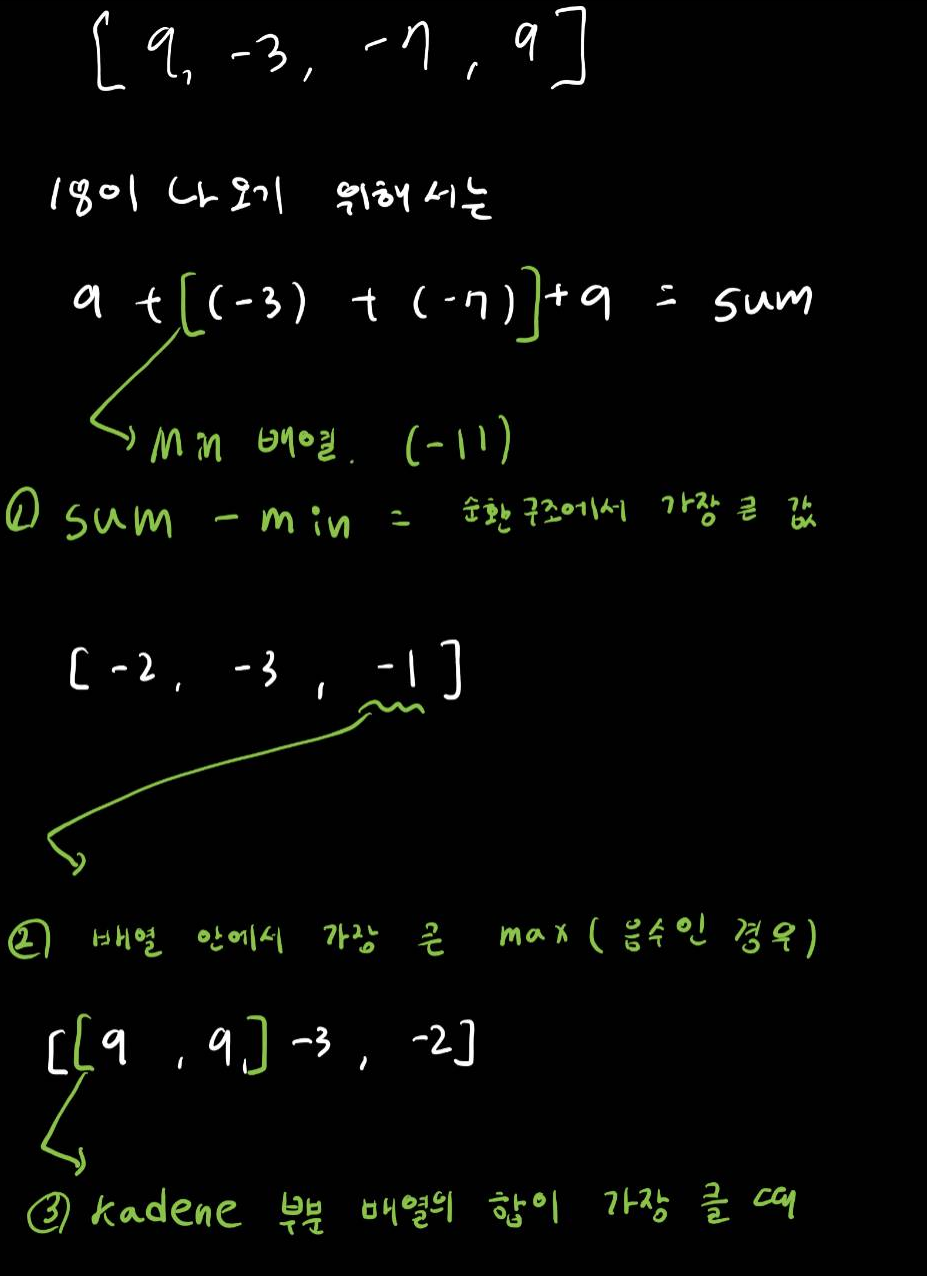 [ 9, -3, -7, 9 ]
18이 나오기 위해서는
9 + [(-3) + (-7)] + 9 = sum
min 배열. (-11)
① sum - min = 순환구조에서 가장 큰 값
[ -2, -3, -1 ]
② 배열 안에서 가장 큰 max ( 음수인 경우 )
[[9, 9,] -3, -2]
③ kadene 부분 배열의 합이 가장 클 때